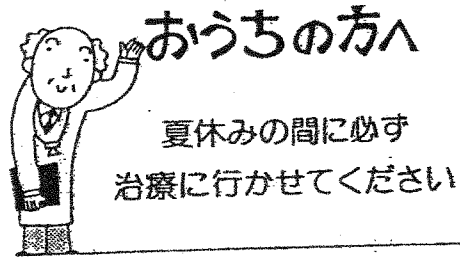 おうちの方へ
夏休みの間に必ず
治療に行かせてください